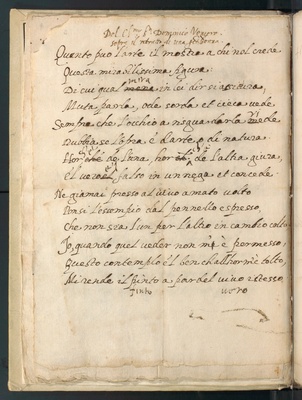 Del Cl.mo S.r Domenico Veniero
sopra il ritratto di
Quanto può l'arte il mostra a chi nol crede
Questa mirabilissima figura:
Di cui qual mira in lei dir si
Muta parla, ode sorda et cieca vede
Sembra che l'occhio a
Dubbia se l'opra è d'arte, o di natura
Hor de l'una, hor de l'altra giura,
El vero falso in un nega et concede
Ne giamai presso al vivo amato volto
Posi l'essempio dal pennello espresso,
Che non sia l'un per l'altro in cambio colto
Io, quando quel veder non m'è permesso,
Questo contemplo e'l ben ch'allhor m'è tolto,
Mi rende il finto a par del vivo istesso
Finto vero